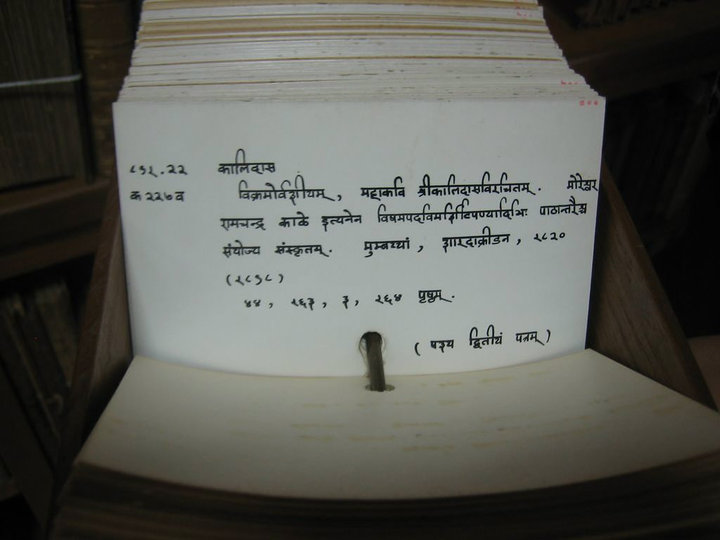 ८९२.२२ कालिदास
क २२७ व विक्रमोर्वशीयम्, महाकवि श्रीकालिदासविरचितम्. मोरेश्वर
रामचन्द्र काळे इत्यनेन विषमपदविमर्शिटिपण्यादिभिः पाठान्तरैश्च
संयोज्य संस्कृतम्. मुम्बय्यां, शारदाक्रीडन, १८२०
(१८९८)
४४, १६३, ३, १६४ पृष्ठम्.
(पश्य द्वितीयं पत्रम्)